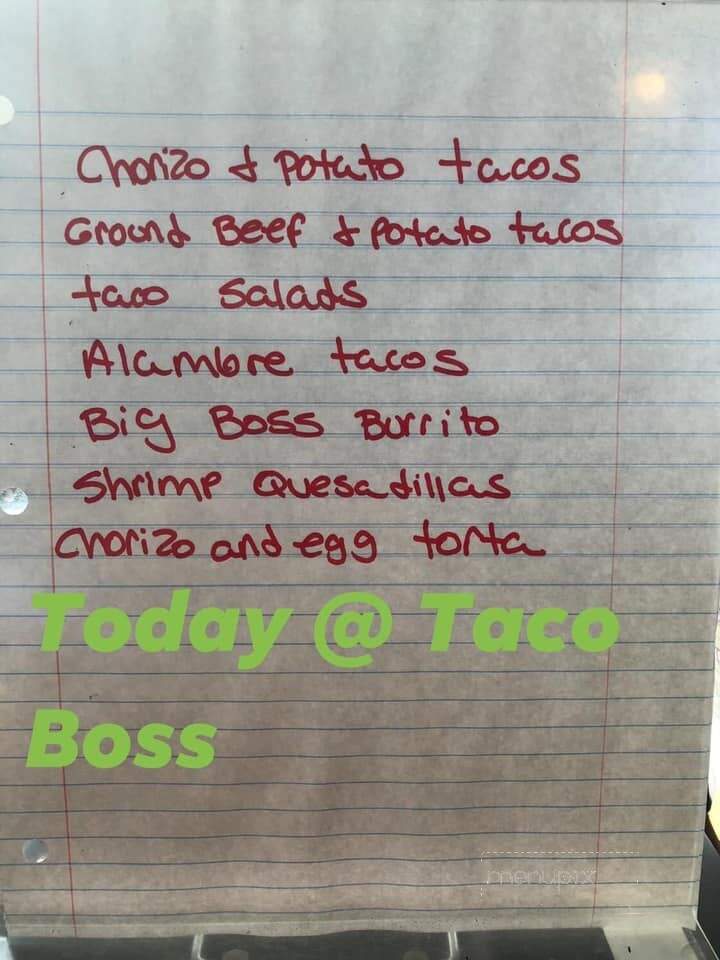 Chorizo & Potato tacos
Ground Beef & Potato tacos
taco Salads
Alambre tacos
Big Boss Burrito
Shrimp Quesadillas
Chorizo and egg torta
Today @ Taco
Boss
menupix